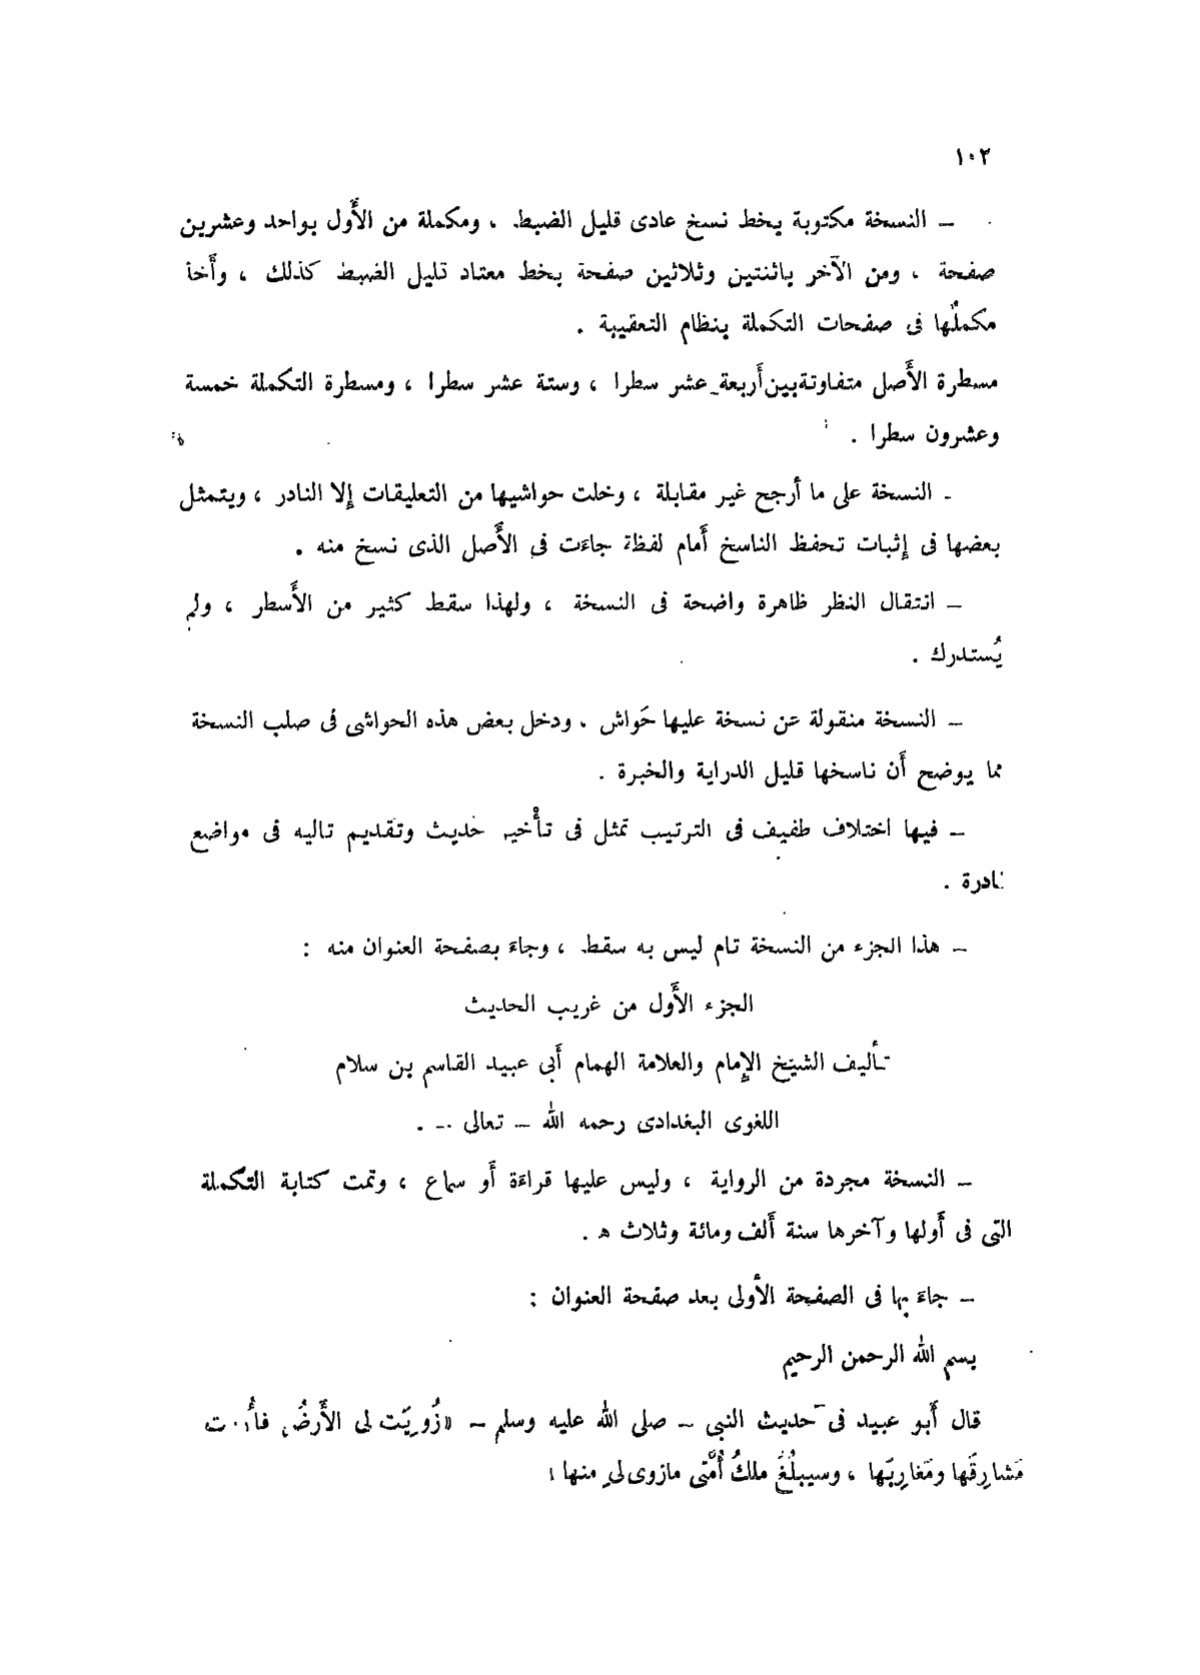 ١٠٢
– النسخة مكتوبة بخط نسخ عادى قليل الضبط ، ومكملة من الأَول بواحد وعشرين
صفحة ، ومن الآخر باثنتين وثلاثين صفحة بخط معتاد قليل الضبط كذلك ، وأَخذ
مكملُها فى صفحات التكملة بنظام التعقيبة .
مسطرة الأَصل متفاوتة بين أَربعة عشر سطرا ، وستة عشر سطرا ، ومسطرة التكملة خمسة
وعشرون سطرا .
- النسخة على ما أرجح غير مقابلة ، وخلت حواشيها من التعليقات إلا النادر ، ويتمثل
بعضها فى إثبات تحفظ الناسخ أَمام لفظة جاءَت فى الأَصل الذى نسخ منه .
– انتقال النظر ظاهرة واضحة فى النسخة ، ولهذا سقط كثير من الأَسطر ، ولم
يُستدرك .
– النسخة منقولة عن نسخة عليها حَواش . ودخل بعض هذه الحواشى فى صلب النسخة
مما يوضح أَن ناسخها قليل الدراية والخبرة .
– فيها اختلاف طفيف فى الترتيب تمثل فى تأْخير حديث وتقديم تاليه فى مواضع
نادرة .
– هذا الجزء من النسخة تام ليس به سقط ، وجاءَ بصفحة العنوان منه :
الجزء الأَول من غريب الحديث
تأليف الشيخ الإِمام والعلامة الهمام أَبى عبيد القاسم بن سلام
اللغوى البغدادى رحمه الله – تعالى – .
– النسخة مجردة من الرواية ، وليس عليها قراءَة أَو سماع ، وتمت كتابة التكملة
التى فى أَولها وآخرها سنة أَلف ومائة وثلاث ه .
– جاءَ بها فى الصفحة الأُولى بعد صفحة العنوان :
بسم الله الرحمن الرحيم
قال أَبو عبيد فى حديث النبى – صلى الله عليه وسلم – « زُوِيَت لى الأَرضُ
مَشارِقَها ومَغارِبَها ، وسيبلُغُ ملكُ أُمَّتى مازوى لىِ منها »